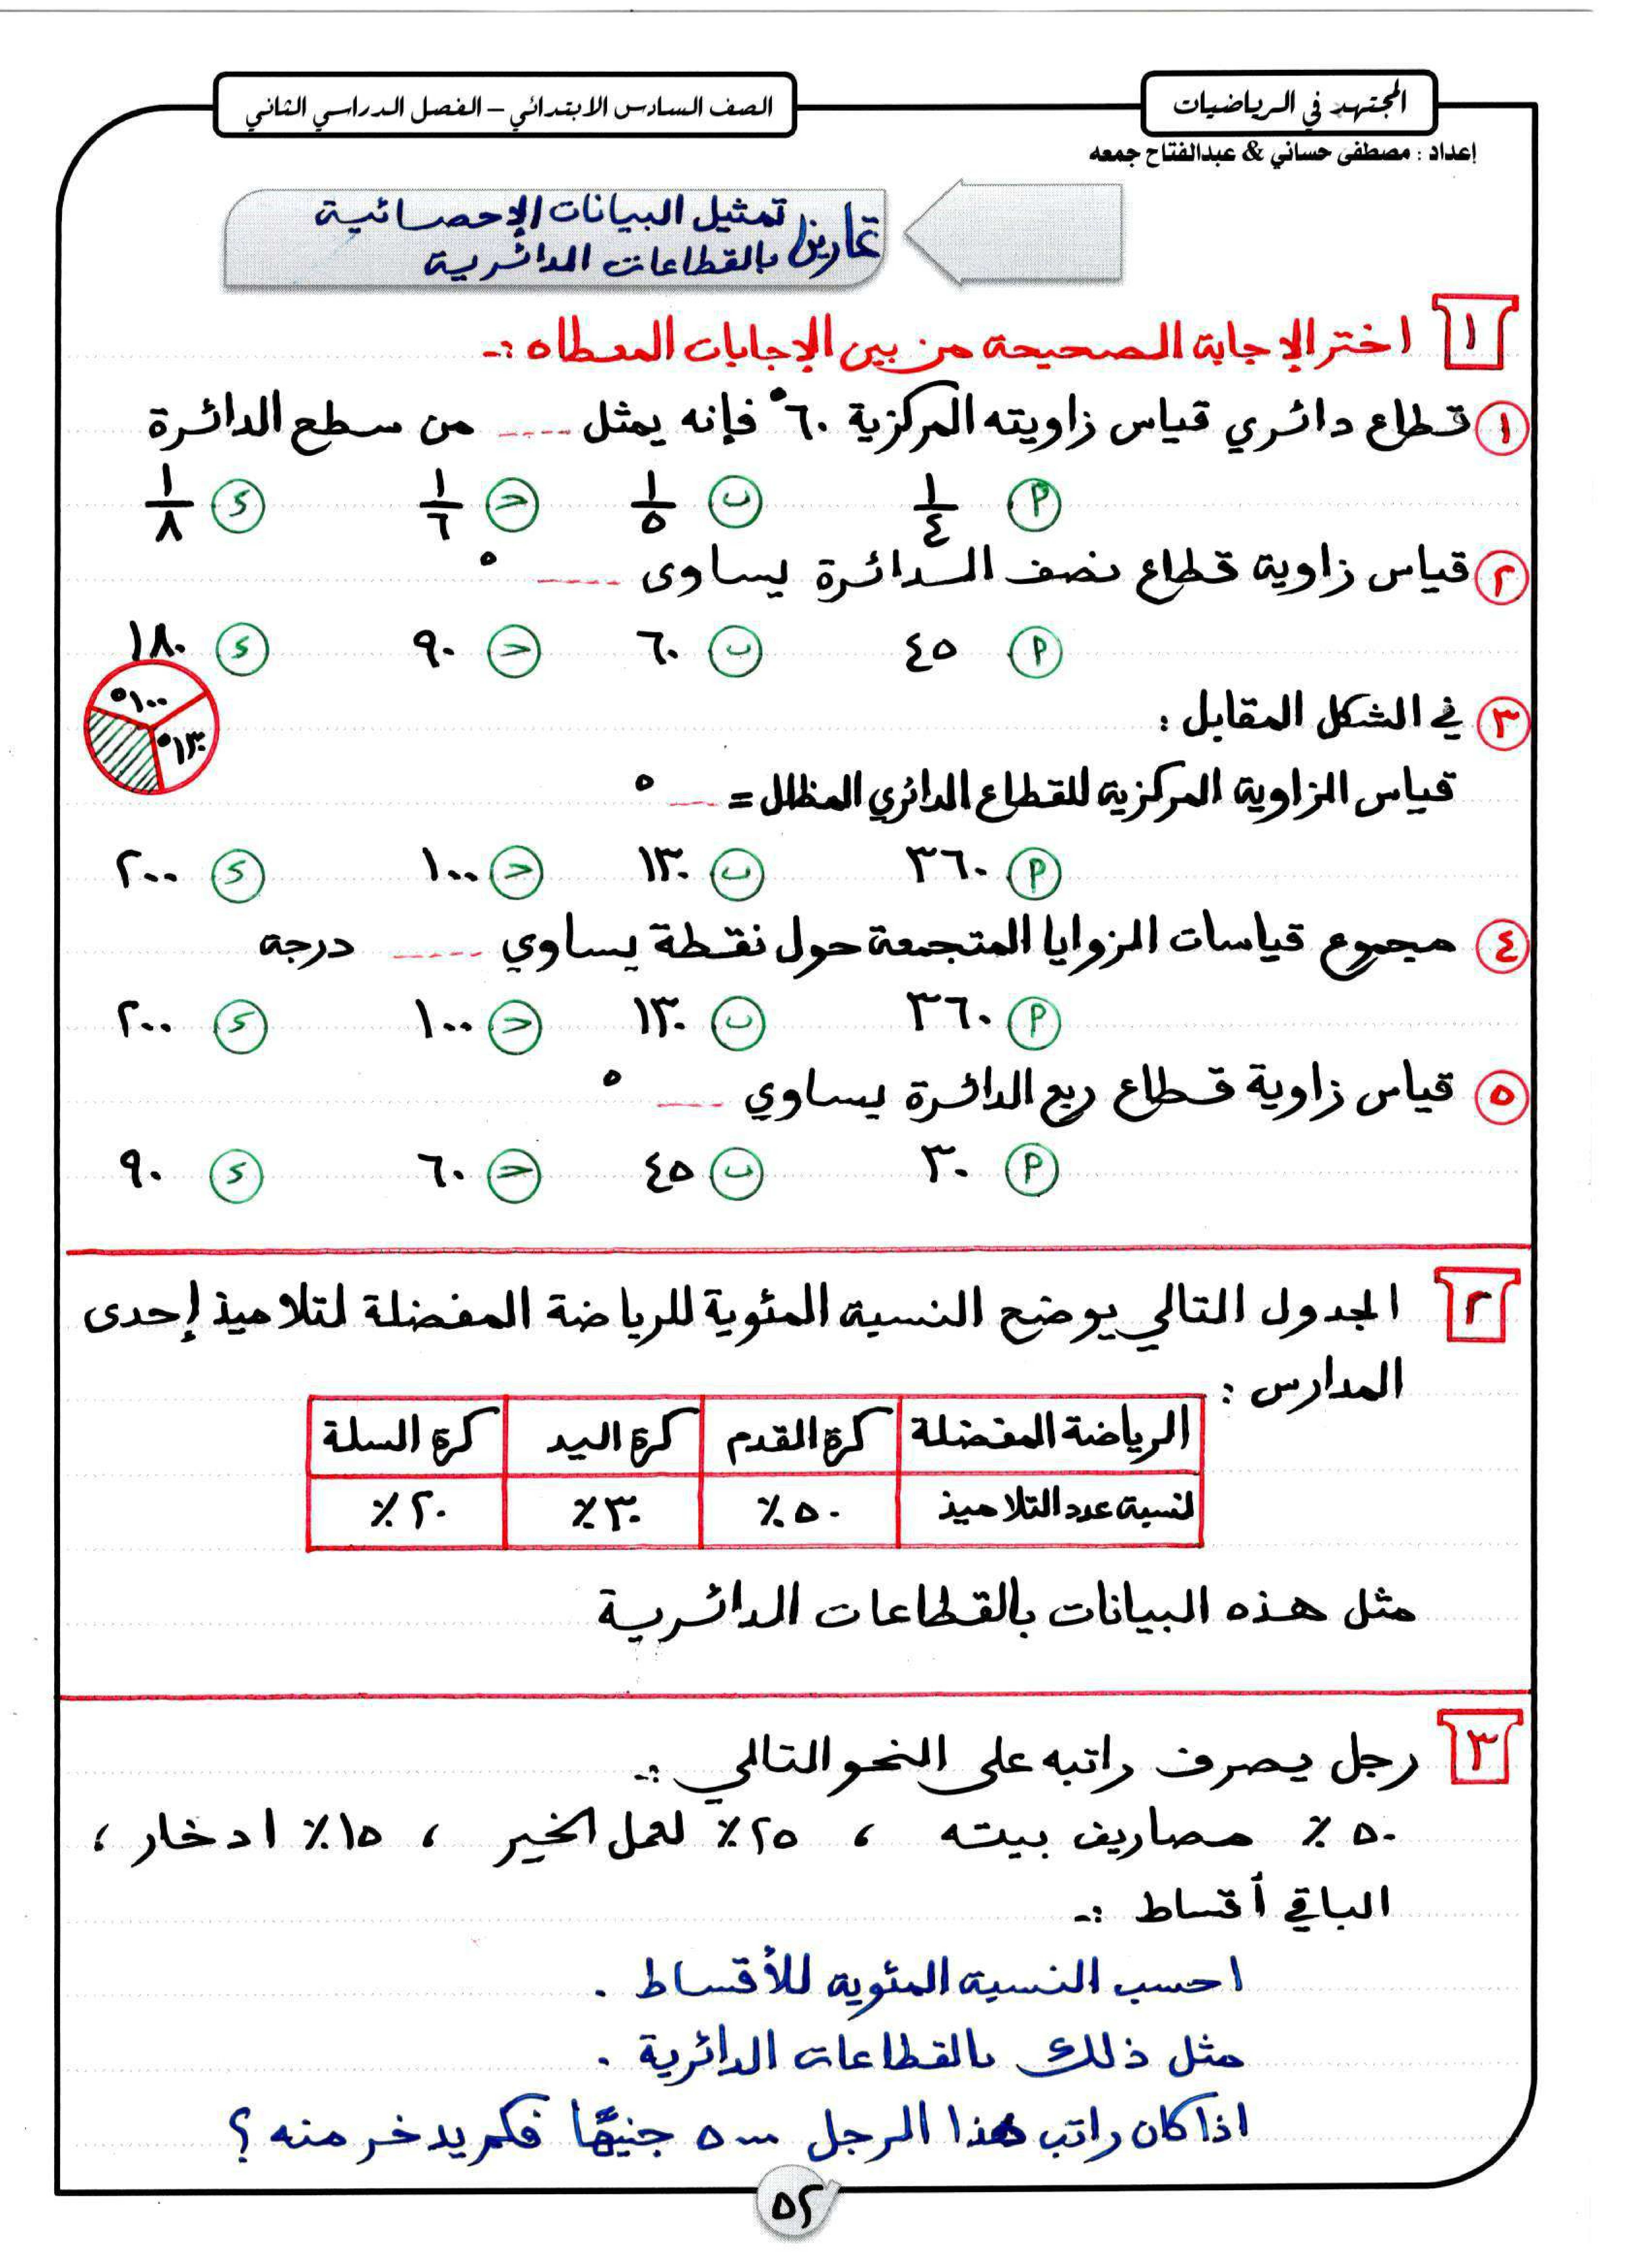 المجتهد في الرياضيات
الصف السادس الابتدائي – الفصل الدراسي الثاني
إعداد : مصطفى حساني & عبدالفتاح جمعه
تمارين تمثيل البيانات الإحصائية
بالقطاعات الدائرية
١ اختر الإجابة الصحيحة من بين الإجابات المعطاه :-
١ قطاع دائري قياس زاويته المركزية ٦٠° فإنه يمثل ---- من سطح الدائرة
P ١/٤ ب ١/٥ ح ١/٦ د ١/٨
٢ قياس زاوية قطاع نصف الدائرة يساوى ---- °
P ٤٥ ب ٦٠ ح ٩٠ د ١٨٠
٣ في الشكل المقابل :
١٠٠°
١٣٠°
قياس الزاوية المركزية للقطاع الدائري المظلل = -- °
P ٣٦٠ ب ١٣٠ ح ١٠٠ د ٢٠٠
٤ مجموع قياسات الزوايا المتجمعة حول نقطة يساوي ---- درجة
P ٣٦٠ ب ١٣٠ ح ١٠٠ د ٢٠٠
٥ قياس زاوية قطاع ربع الدائرة يساوي --- °
P ٣٠ ب ٤٥ ح ٦٠ د ٩٠
٢ الجدول التالي يوضح النسبة المئوية للرياضة المفضلة لتلاميذ إحدى
المدارس :
الرياضة المفضلة كرة القدم كرة اليد كرة السلة
نسبة عدد التلاميذ ٥٠٪ ٣٠٪ ٢٠٪
مثل هذه البيانات بالقطاعات الدائرية
٣ رجل يصرف راتبه على النحو التالي :-
٥٠٪ مصاريف بيته ، ٢٥٪ لعمل الخير ، ١٥٪ ادخار ،
الباقي أقساط :-
احسب النسبة المئوية للأقساط .
مثل ذلك بالقطاعات الدائرية .
اذا كان راتب هذا الرجل ٥٠٠٠ جنيهًا فكم يدخر منه ؟
٥٢